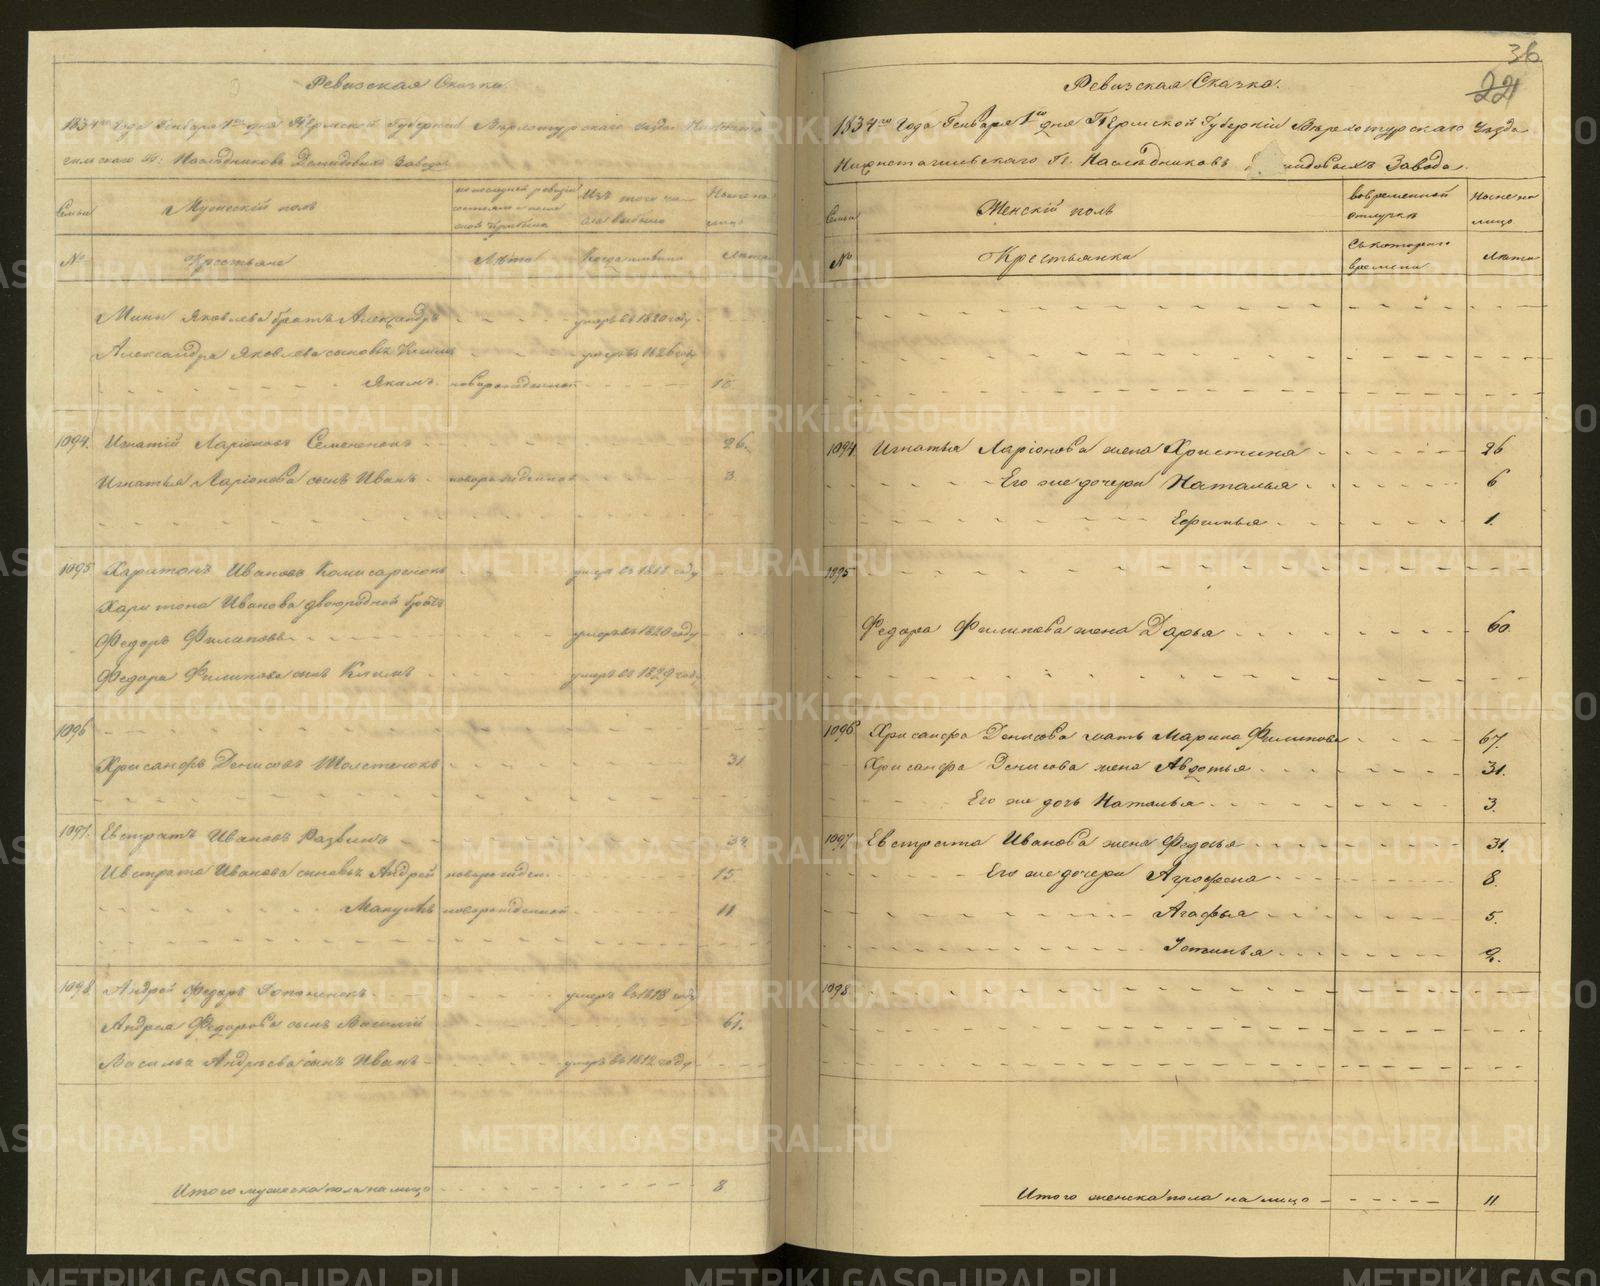 Ревизская Сказка.
1834го Года Генваря 1го дня Пермской Губернiи Верхотурского уезда Нижнета-
гильского Гг: Наследниковъ Демидовыхъ Завода
Семьи
Мужескiй полъ
по последней ревизiи состояло и после оной прибыло
Изъ того числа выбыло
Ныне на лицо
№
Крестьяне
Лета
Когда имянно
Лета
Мины Яковлева братъ Александръ - - - умеръ въ 1820 году
Александра Яковлева сыновья Климъ - - - умеръ въ 1826 году
Якимъ новорожденной - - - 15
1094. Игнатiй Ларiоновъ Семененокъ - - - 26.
Игнатья Ларiонова сынъ Иванъ - новорожденной 3
1095 Харитонъ Ивановъ Комисаренокъ - - - умеръ въ 1818 году
Харитона Иванова двоюродной братъ
Федоръ Филиповъ - - - умеръ въ 1820 году
Федора Филипова сынъ Климъ - умеръ въ 1829 году
1096
Хрисанфъ Денисовъ Толстенокъ - - - 31
1097. Евстратъ Ивановъ Развинъ - - 34.
Евстрата Иванова сыновья Андрей новорожден. 15
Макулъ новорожденной - - - 11
1098. Андрей Федоръ Гапоненокъ - - - умеръ въ 1818 году
Андрея Федорова сынъ Василiй - - - 61.
Василья Андреева сынъ Иванъ - умеръ въ 1812 году
Итого мужеска пола на лицо - - - 8
36
221
Ревизская Сказка.
1834го Года Генваря 1го дня Пермской Губернiи Верхотурскаго Уезда
Нижнетагильскаго Гг. Наследниковъ мидовыхъ Завода
Семьи
Женскiй полъ
во временной отлучке
Ныне на лицо
№
Крестьянки
Съ котораго времени
Лета
1094 Игнатья Ларiонова жена Христина - - - 26
Его же дочери Наталья - - - 6
Ефимья - - - 1.
1095
Федора Филипова жена Дарья - - - 60.
1096 Хрисанфа Денисова мать Марина Филипова - - - 67.
Хрисанфа Денисова жена Авдотья - - - 31.
Его же дочь Наталья - - - 3.
1097 Евстрата Иванова жена Федосья - - - 31.
Его же дочери Агрофена - - - 8.
Агафья - - - 5.
Устинья - - - 2.
1098.
Итого женска пола на лицо - - - 11
METRIKI.GASO-URAL.RU